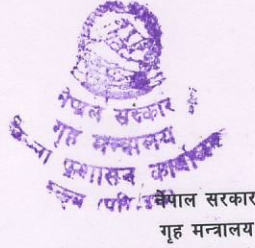 नेपाल सरकार
गृह मन्त्रालय
प्रशासन
नेपाल सरकार
गृह मन्त्रालय